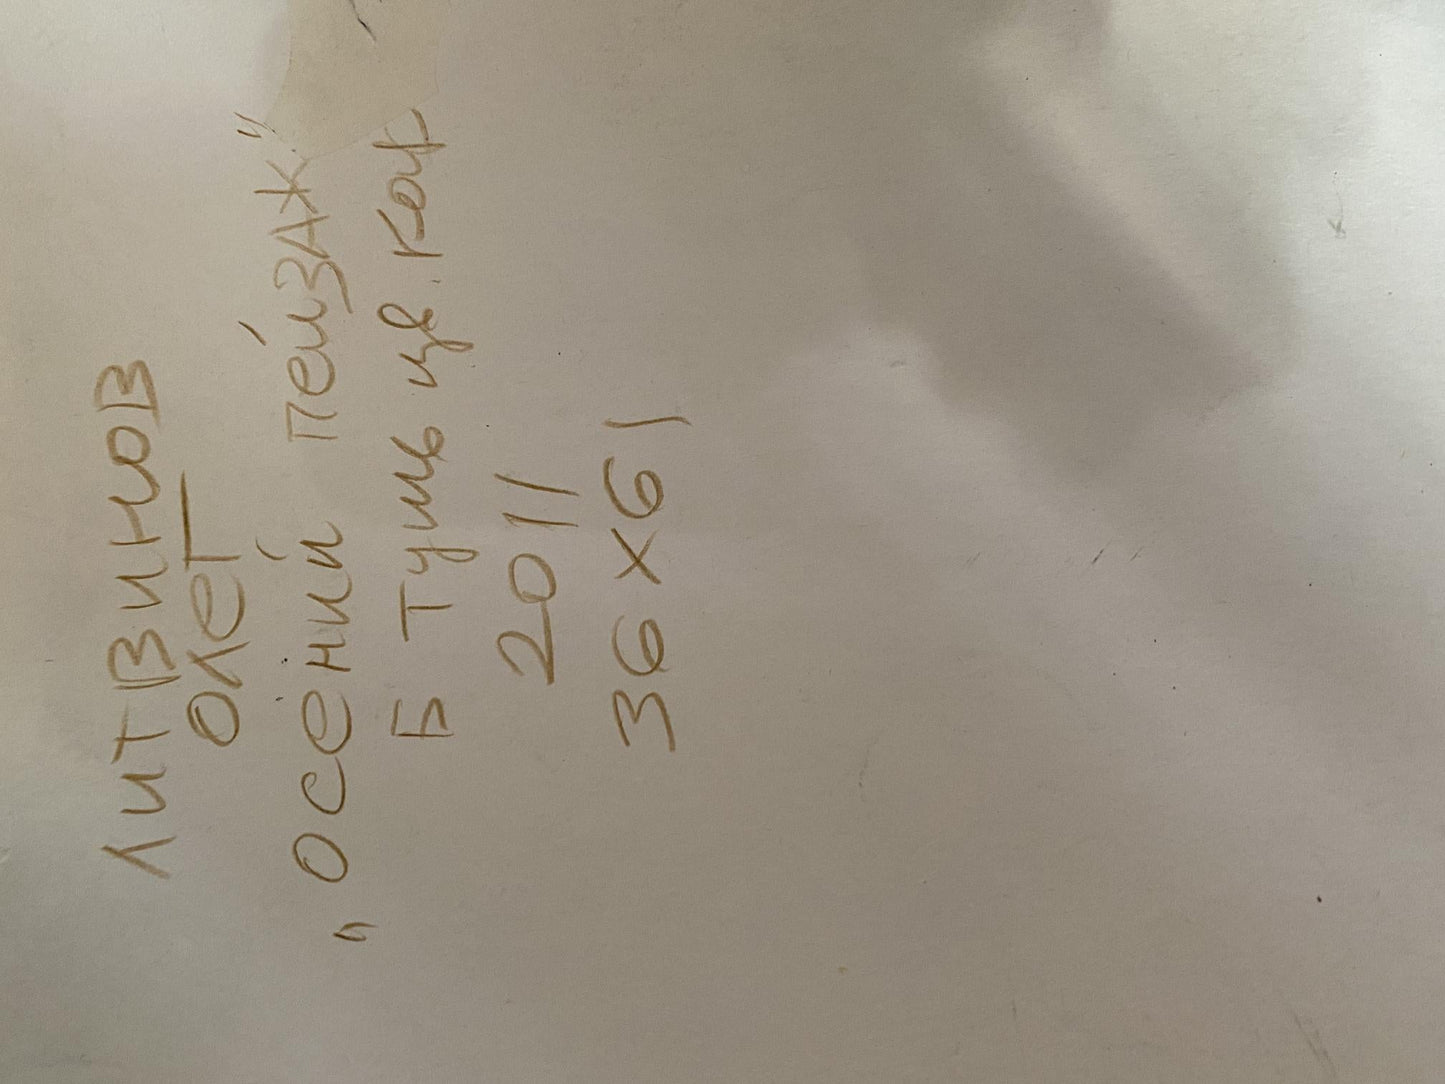 ЛИТВИНОВ
ОЛЕГ
"ОСЕНИЙ ПЕЙЗАЖ"
Б ТУШЬ ЦВ. КАР
2011
36х61